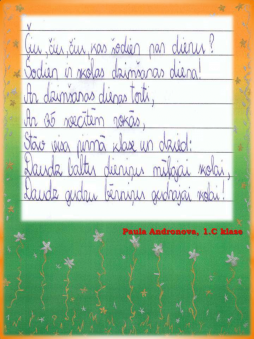 Čiu, čiu, čiu, kas šodien par dienu?
Šodien ir skolas dzimšanas diena!
Ar dzimšanas dienas torti,
Ar 65 svecītēm rokās,
Stāv visa pirmā klase un dzied:
Daudz baltu dieniņu mīļajai skolai,
Daudz gudru bērniņu gudrajai skolai!
Paula Andronova, 1.C klase